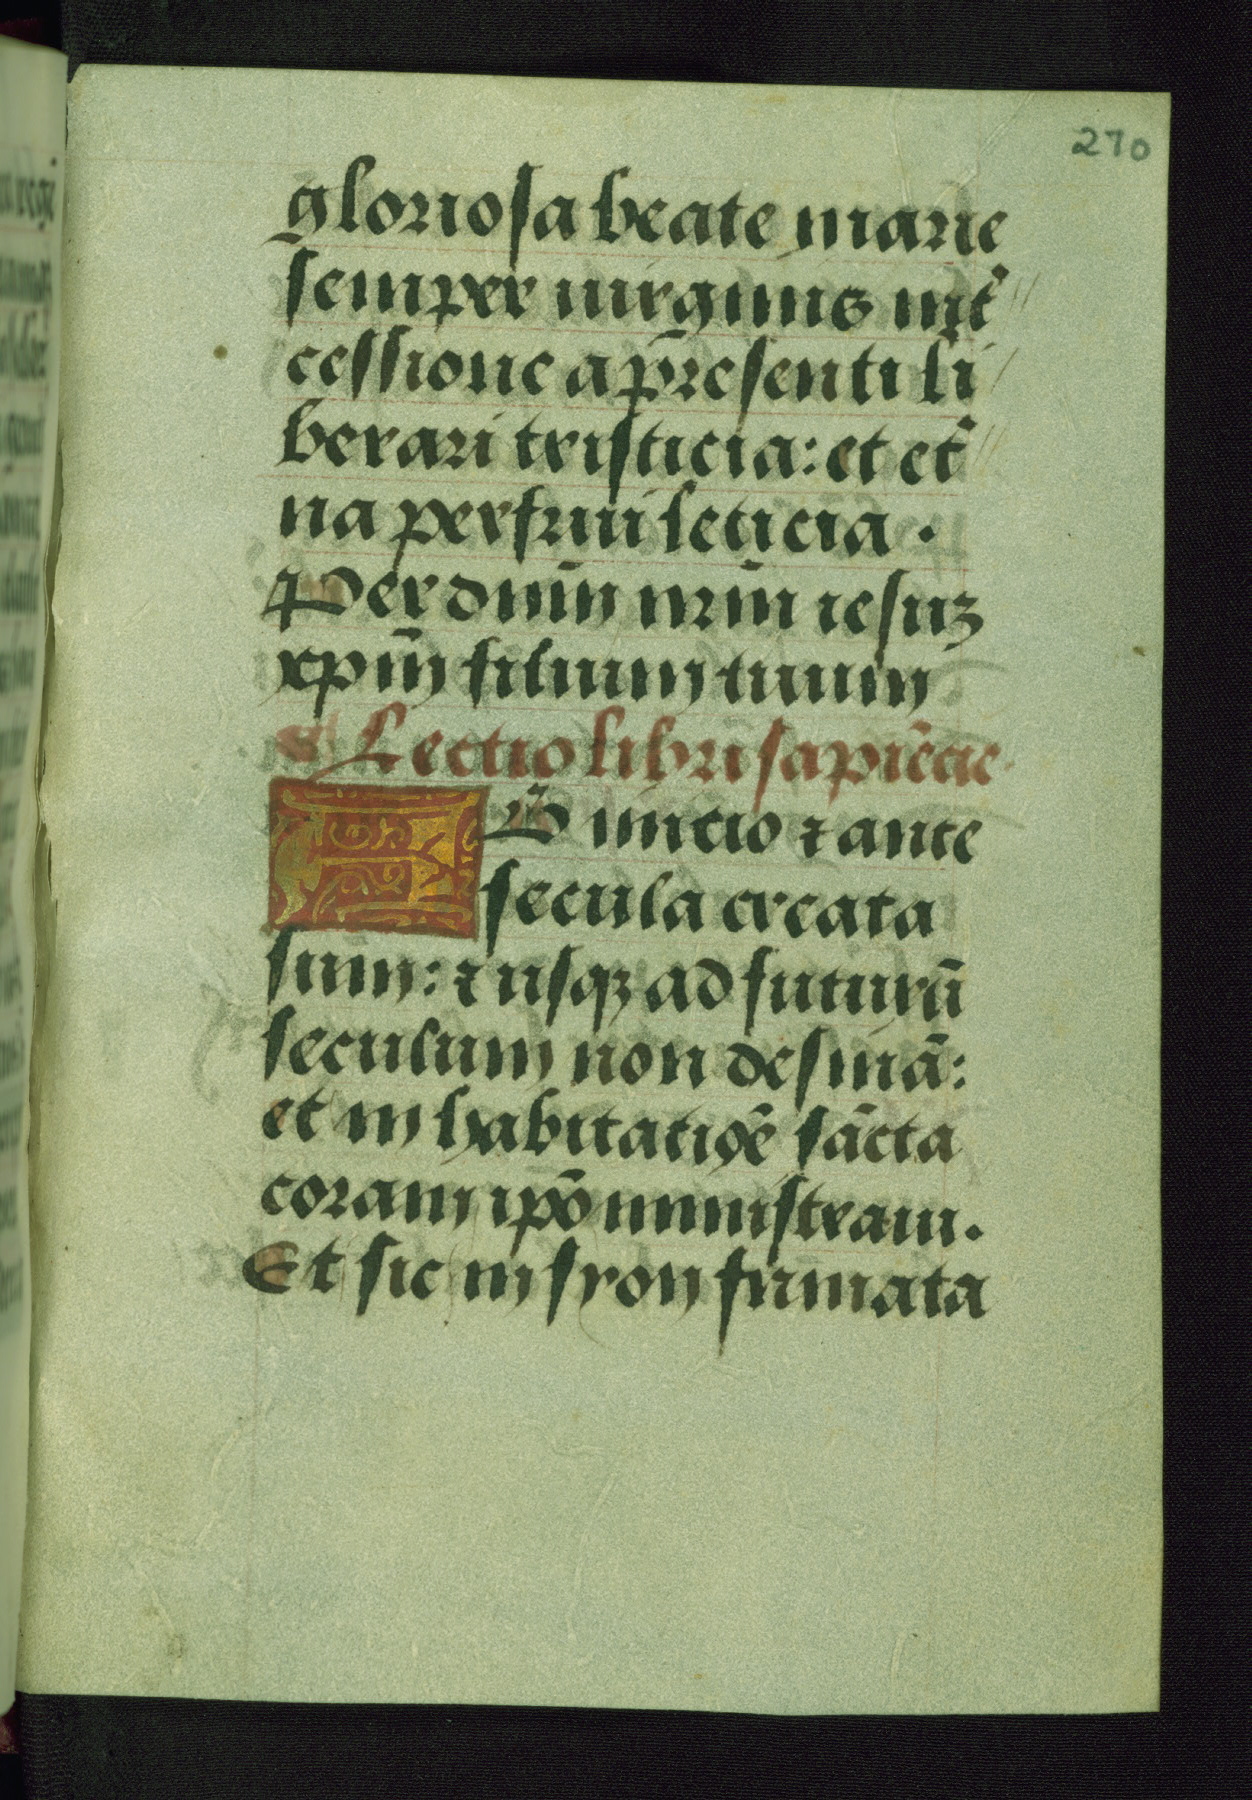 270
gloriosa beate marie
semper uirginis int᷑
cessione a p̄resenti li
berari tristicia: et et᷑
na perfrui leticia.
Per dn̄m nr̄m iesuꝫ
xpm̄ filium tuum
Lectio libri sapiēcie
AB initio ⁊ ante
secula creata
sum: ⁊ usqꝫ ad futurū
seculum non desinā:
et in habitatiōe sācta
coram ip̄o ministraui.
Et sic in syon firmata